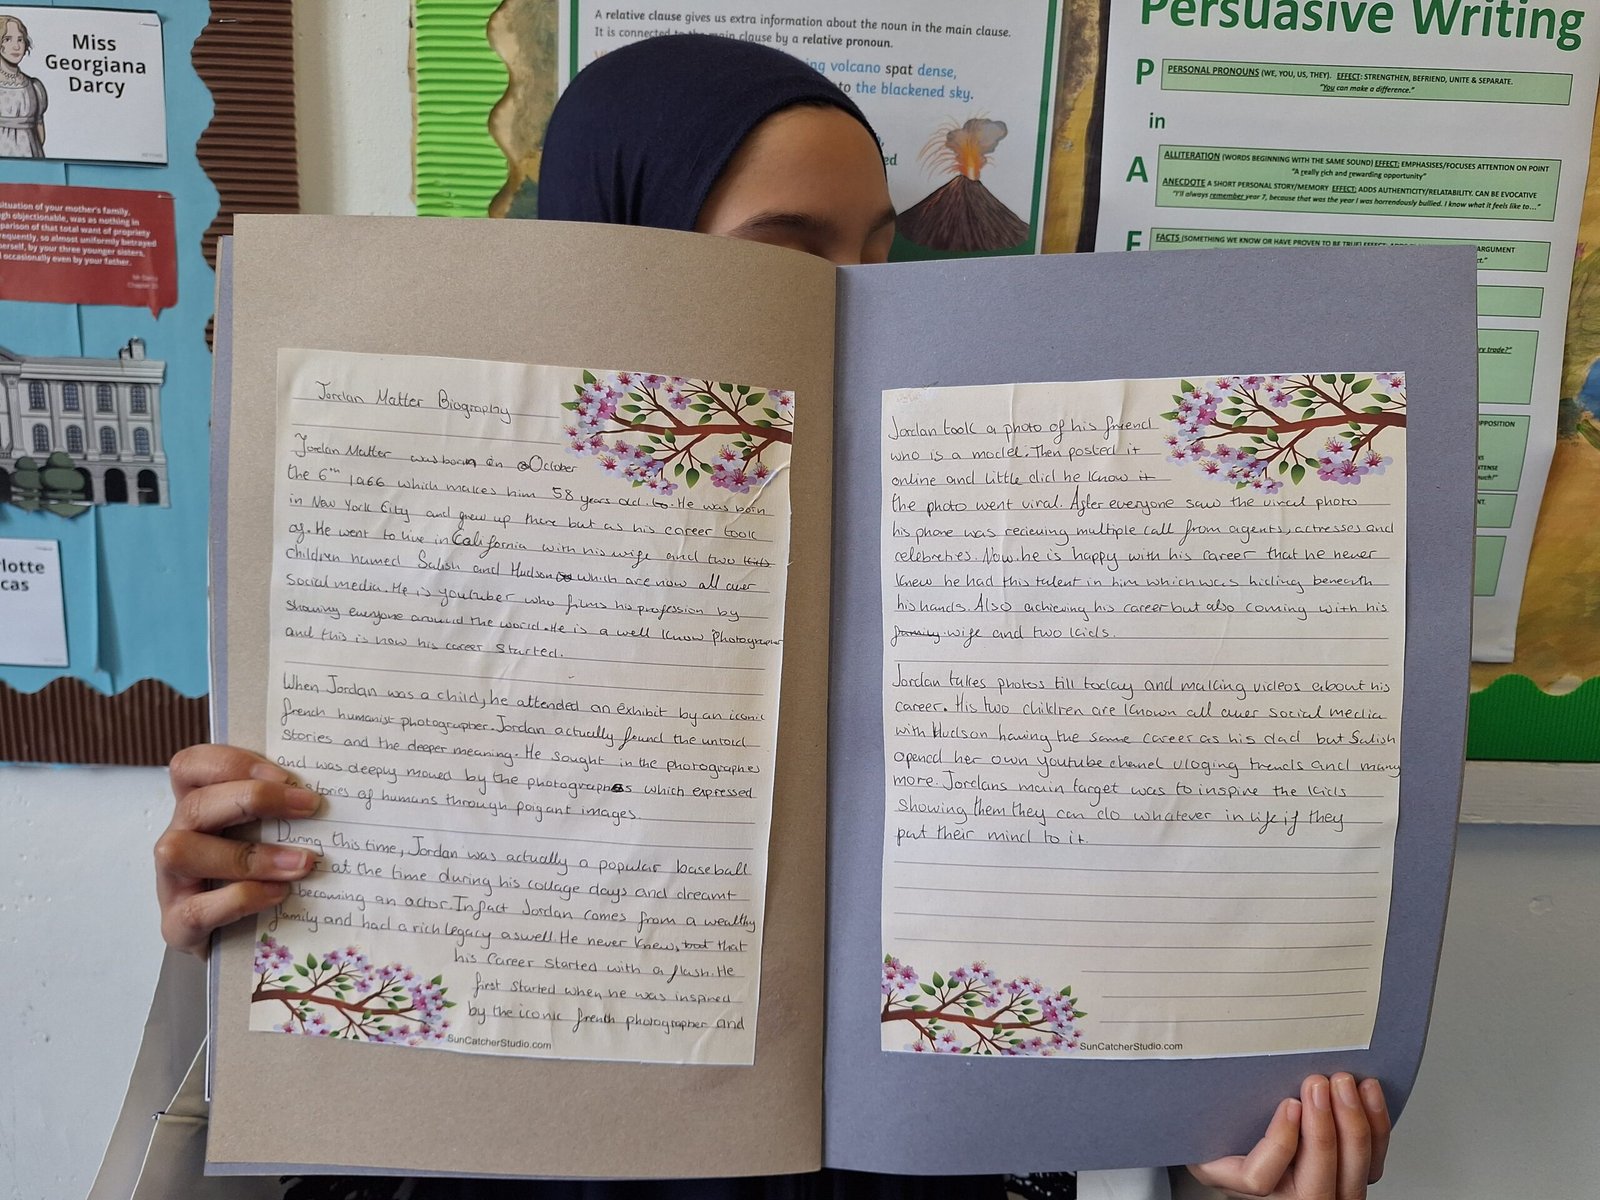 Miss
Georgiana
Darcy
situation of your mother's family,
gh objectionable, was as nothing in
parison of that total want of propriety
requently, so almost uniformly betrayed
herself, by your three younger sisters,
occasionally even by your father.
Mr Darcy
Chapter
rlotte
cas
A relative clause gives us extra information about the noun in the main clause.
It is connected to the main clause by a relative pronoun.
ing volcano spat dense,
to the blackened sky.
ed
Persuasive Writing
P
PERSONAL PRONOUNS (WE, YOU, US, THEY). EFFECT: STRENGTHEN, BEFRIEND, UNITE & SEPARATE.
"You can make a difference."
in
A
ALLITERATION (WORDS BEGINNING WITH THE SAME SOUND) EFFECT: EMPHASISES/FOCUSES ATTENTION ON POINT
"A really rich and rewarding opportunity"
ANECDOTE A SHORT PERSONAL STORY/MEMORY EFFECT: ADDS AUTHENTICITY/RELATABILITY. CAN BE EVOCATIVE
"I'll always remember year 7, because that was the year I was horrendously bullied. I know what it feels like to..."
F
FACTS (SOMETHING WE KNOW OR HAVE PROVEN TO BE TRUE) EFFECT: ARGUMENT
ry trade?"
OPPOSITION
Jordan Matter Biography
Jordan Matter was born in October
the 6th 1966 which makes him 58 years old. to. He was born
in New York City and grew up there but as his career took
of. He went to live in California with his wife and two kids
children named Salish and Hudson which are now all over
social media. He is youtuber who films his profession by
showing everyone around the world. He is a well know photographer
and this is how his career started.
When Jordan was a child, he attended an exhibit by an iconic
french humanist photographer. Jordan actually found the untold
stories and the deeper meaning. He sought in the photographes
and was deeply moved by the photographs which expressed
stories of humans through poigant images.
During this time, Jordan was actually a popular baseball
at the time during his collage days and dreamt
becoming an actor. Infact Jordan comes from a wealthy
family and had a rich legacy aswell. He never knew, but that
his career started with a flash. He
first started when he was inspired
by the iconic french photographer and
SunCatcherStudio.com
Jordan took a photo of his friend
who is a model. Then posted it
online and little did he know it
the photo went viral. After everyone saw the viral photo
his phone was recieving multiple call from agents, actresses and
celebreties. Now he is happy with his career that he never
knew he had this talent in him which was hiding beneath
his hands. Also achieving his career but also coming with his
family wife and two kids.
Jordan takes photos till today and making videos about his
career. His two children are known all over social media
with Hudson having the same career as his dad but Salish
opened her own youtube chanel vloging trends and many
more. Jordans main target was to inspire the kids
showing them they can do whatever in life if they
put their mind to it.
SunCatcherStudio.com